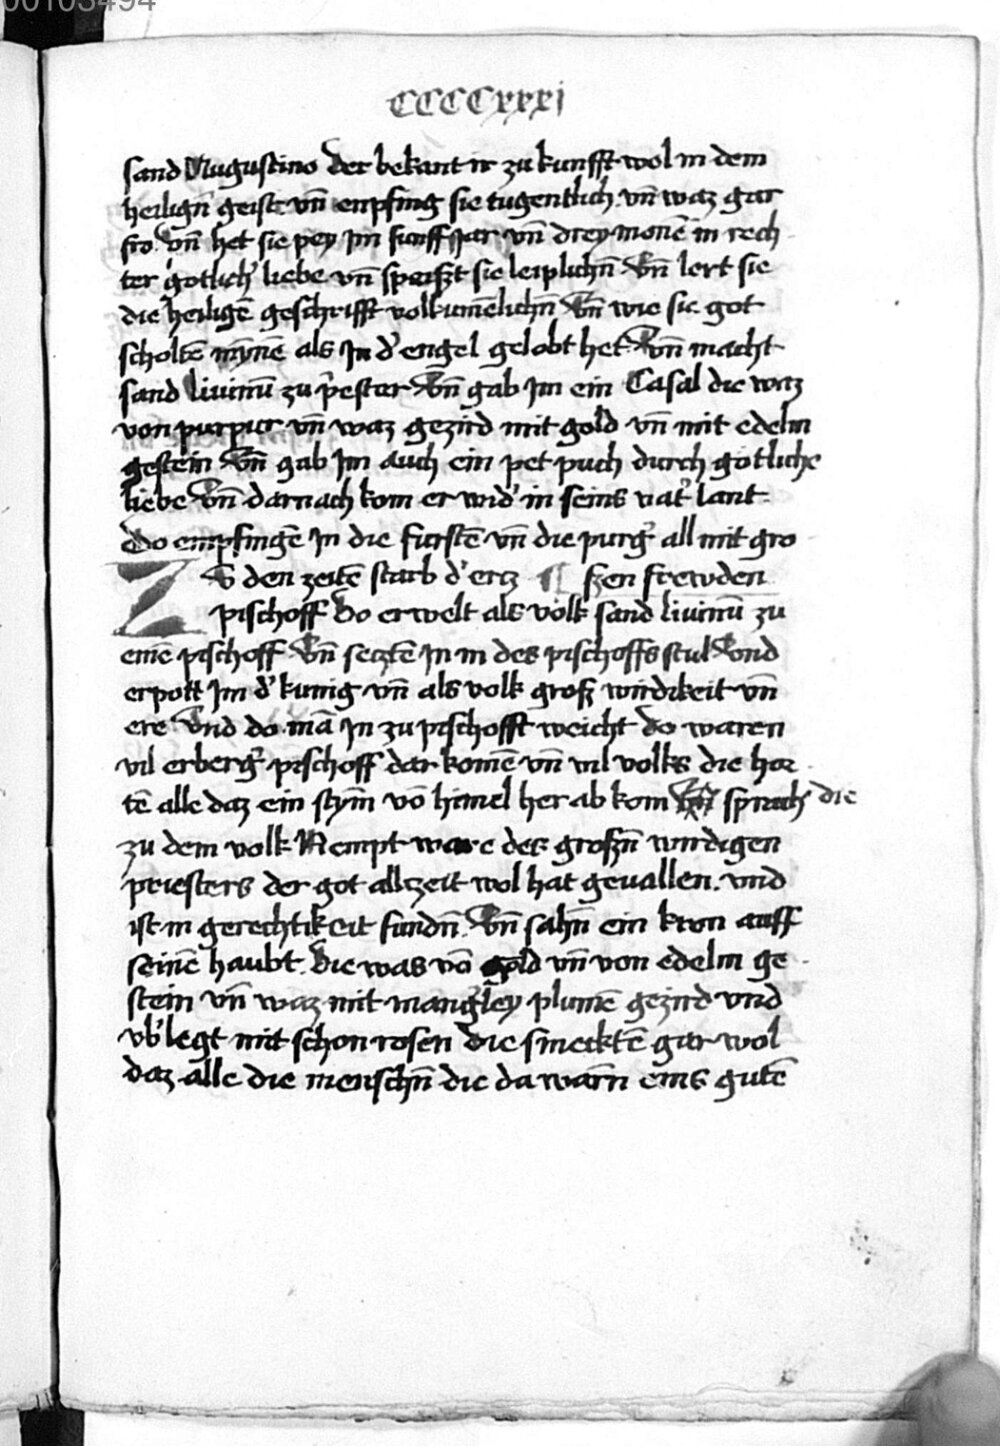 00103494
CCCCxxxj
sand Augustino der bekant ir zu kunfft wol in dem
heilign̄ geist vn̄ enpfing sie tugentlich vn̄ waz gar
fro vn̄ het sie pey Jm funff Jar vn̄ drey monē in rech
ter gotlich' liebe vn̄ speiszt sie leiplichn̄ Vn̄ lert sie
die heiligē geschrifft volkumēlichn̄ Vn̄ wie sie got
scholtē mynnē als Jn d' engel gelobt het Vn̄ macht
sand liuinū zu p'ester Vn̄ gab Jm ein Casal die waz
von purpur vn̄ waz gezird mit gold vn̄ mit edelm
gestein Vn̄ gab Jm auch ein pet puch durch gotliche
liebe Vn̄ darnach kom er wid' in seins vat' lant
Do empfingē Jn die furstē vn̄ die purg' all mit gro
ZV den zeitē starb d' ercz ¶ szen frewden
pischoff Do erwelt als volk sand liuinū zu
einē pischoff Vn̄ seztē Jn in des pischoffs stul Vnd
erpott Jm d' kunig vn̄ als volk grosz wirdikeit vn̄
ere Vnd do mā Jn zu pischofft weicht do waren
vil erberg' pischoff dar komē vn̄ vil volks die hor
tē alle daz ein stym̄ vō himel her ab kom die sprach
zu dem volk Nempt ware des groszn̄ wirdigen
priesters der got allczeit wol hat geuallen. vnd
ist in gerechtikeit fundn̄ Vn̄ sahn̄ ein kron auff
seinē haubt Die was vō gold vn̄ von edelm ge
stein vn̄ waz mit mang'ley plumē gezird vnd
vb'legt mit schon rosen die smecktē gar wol
daz alle die menschn̄ die da warn̄ eins gutē